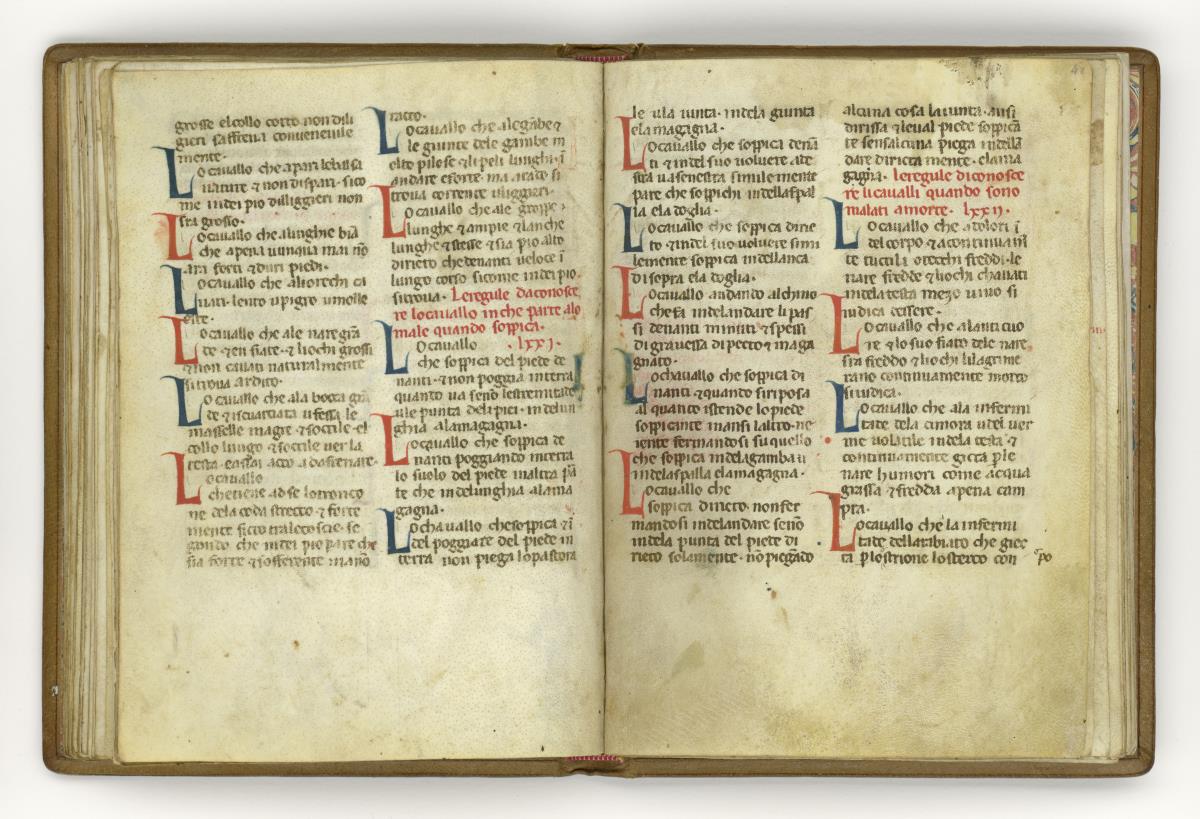 grosse el collo corto non dili
gieri saffrena conueneuile
mente.
Lo cauallo che apari le balsa
nature & non dispari. sico
me indei pio dilliggieri non
sra grosso.
Lo cauallo che alunghie biã
che apena uunqua mai nõ
ara forti & duri piedi.
Lo cauallo che aliorechi ca
uati. lento u pigro u molle
este.
Lo cauallo che ale nare grã
de & enfiate. & liochi grossi
& non cauati naturalmente
si troua ardito.
Lo cauallo che ala bocca grã
de & iscuarciata u fessa le
masselle magre & soctile. el
collo lungo & soctile uer la
testa. eassai acto abasfenare.
Lo cauallo
che tiene ad se lo tronco
ne dela coda strecto & forte
mente sicto tralecoscie. se
gondo che indei pio pare che
sia forte & sofferente. ma nõ
racto.
Lo cauallo che ale gãbe &
le giunte dele gambe m
olto pilose & li peli lunghi. ĩ
andare e forte. ma racto si
troua corrente u liggieri.
Lo cauallo che ale groppe
lunghe & ampie & lanche
lunghe & stese & sia pio alto
dirieto che denanti ueloce ĩ
lungo corso sicome indei pio
si troua. Le regule da conosce
re lo cauallo in che parte alo
male quando soppica.
Lo cauallo . lxxj.
che soppica del piede de
nanti. & non poggia in terra
quanto ua send lestremitate
u le punta dei pici. indelun
ghia ala magagna.
Lo cauallo che soppica de
nanti poggiando in terra
lo suolo del piede in altra pã
te che indelunghia ala ma
gagna.
Lo chauallo che soppica & ĩ
del poggiare del piede in
terra non piega lo pastora
le u la iunta. indela giunta
e la magagna.
Lo cauallo che soppica denã
ti & indel suo uoluere a de
stra u a senestra simile mente
pare che soppichi indella spal
la e la doglia.
Lo cauallo che soppica dirie
to & indel suo uoluere simi
lemente soppica indellanca
di sopra e la doglia.
Lo cauallo andando al chino
che fa indelandare li pas
si denanti minuti & spessi
di grauessa di pecto & maga
gnato.
Lo chauallo che soppica di
nanti & quando si riposa
al quanto istende lo piede
soppicante mansi laltro. ne
iente fermandosi su quello
che soppica indela gamba u
indela spalla e la magagna.
Lo cauallo che
soppica dirieto. non fer
mandosi indelandare se nõ
in dela punta del piede di
rieto solamente. nõ piegãdo
alcuna cosa la iunta. ansi
dirissa & leua l piede soppicã
te sensa alcuna piega indella
dare diricta mente. e la ma
gagna. Le regule di conosce
re li caualli quando sono
malati amorte. lxxij.
Lo cauallo che a dolori ĩ
del corpo & a continuam̃
te tucti li orecchi freddi. le
nare fredde & liochi chauati
indela testa meso uiuo si
iudica essere.
Lo cauallo che alanticuo
re & lo suo fiato dele nare
sra freddo & liochi li lagrime
rano continuamente morto
si iudica.
Lo cauallo che ala infermi
tate de la cimora u del uer
me uolatile indela testa &
continuamente gicta p le
nare humori come acqua
grassa & fredda apena cam
pra.
Lo cauallo che la infermi
tate dell atribiato che giec
ta p lo strione lo sterco con